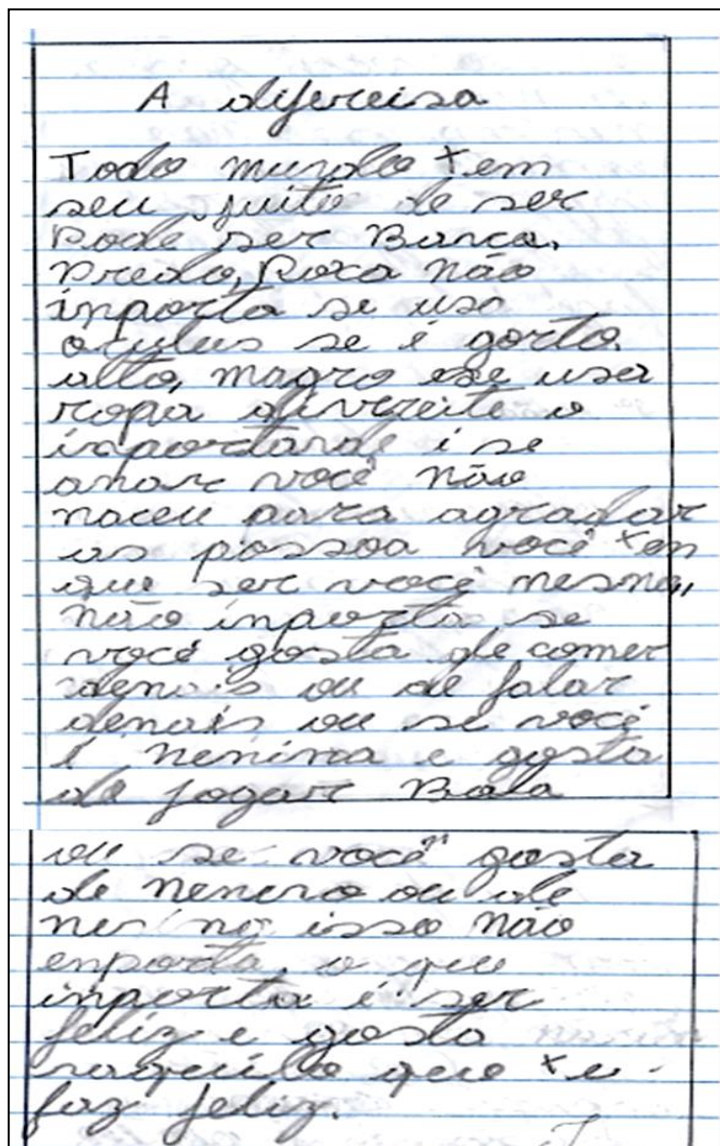 A difereisa
Todo mundo tem
seu juito de ser
Pode ser Banca,
Predo, Roxa não
inporta se usa
oculus se é gorto.
alto, magro ese usa
ropa divrreite o
inportande é se
amar você não
naceu para agradar
as possoa você ten
que ser você mesma,,
não inporta se
você gosta de comer
denais ou de falar
denais ou se você
é nenina e gosta
de jogar Bola
ou se você gosta
de nenino ou de
isso não
enporta, o que
inporta é ser
feliz e gosta
naquilo que te
faz feliz.